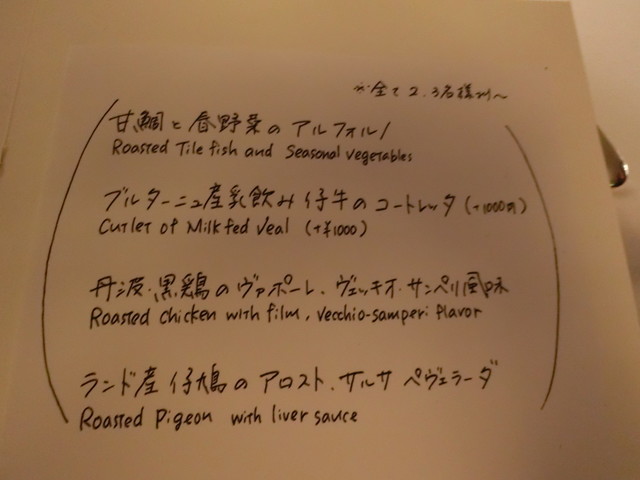 ※全て2.3名様より〜
甘鯛と春野菜のアルフォルノ
Roasted Tile fish and Seasonal vegetables
ブルターニュ産乳飲み仔牛のコートレッタ (+1000円)
Cutlet of Milk fed Veal (+¥1000)
丹波・黒鶏のヴァポーレ、ヴェッキオ・サンペリ風味
Roasted chicken with film, Vecchio-samperi flavor
ランド産仔鳩のアロスト、サルサ ペヴェラーダ
Roasted Pigeon with liver sauce